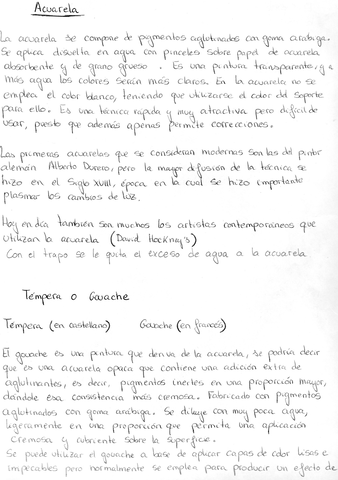 Acuarela
La acuarela se compone de pigmentos aglutinados con goma arábiga.
Se aplica disuelta en agua con pinceles sobre papel de acuarela
absorbente y de grano grueso. Es una pintura transparente, y a
más agua los colores serán más claros. En la acuarela no se
emplea el color blanco, teniendo que utilizarse el color del soporte
para ello. Es una técnica rápida y muy atractiva pero difícil de
usar, puesto que además apenas permite correcciones.
Las primeras acuarelas que se consideran modernas son las del pintor
alemán Alberto Durero, pero la mayor difusión de la técnica se
hizo en el Siglo XVIII, época en la cual se hizo importante
plasmar los cambios de luz.
Hoy en día también son muchos los artistas contemporáneos que
utilizan la acuarela (David Hockney's)
Con el trapo se le quita el exceso de agua a la acuarela
Témpera o Gouache
Témpera (en castellano) Gouache (en francés)
El gouache es una pintura que deriva de la acuarela, se podría decir
que es una acuarela opaca que contiene una adición extra de
aglutinantes, es decir, pigmentos inertes en una proporción mayor,
dándole esa consistencia más cremosa. Fabricado con pigmentos
aglutinados con goma arábiga. Se diluye con muy poca agua,
ligeramente en una proporción que permita una aplicación
cremosa y cubriente sobre la superficie.
Se puede utilizar el gouache a base de aplicar capas de color lisas e
impecables pero normalmente se emplea para producir un efecto de